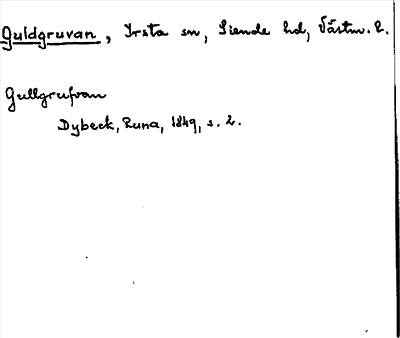 Guldgruvan, Irsta sn, Siende hd, Västm. l.
Gullgrufvan
Dybeck, Runa, 1849, s. 2.